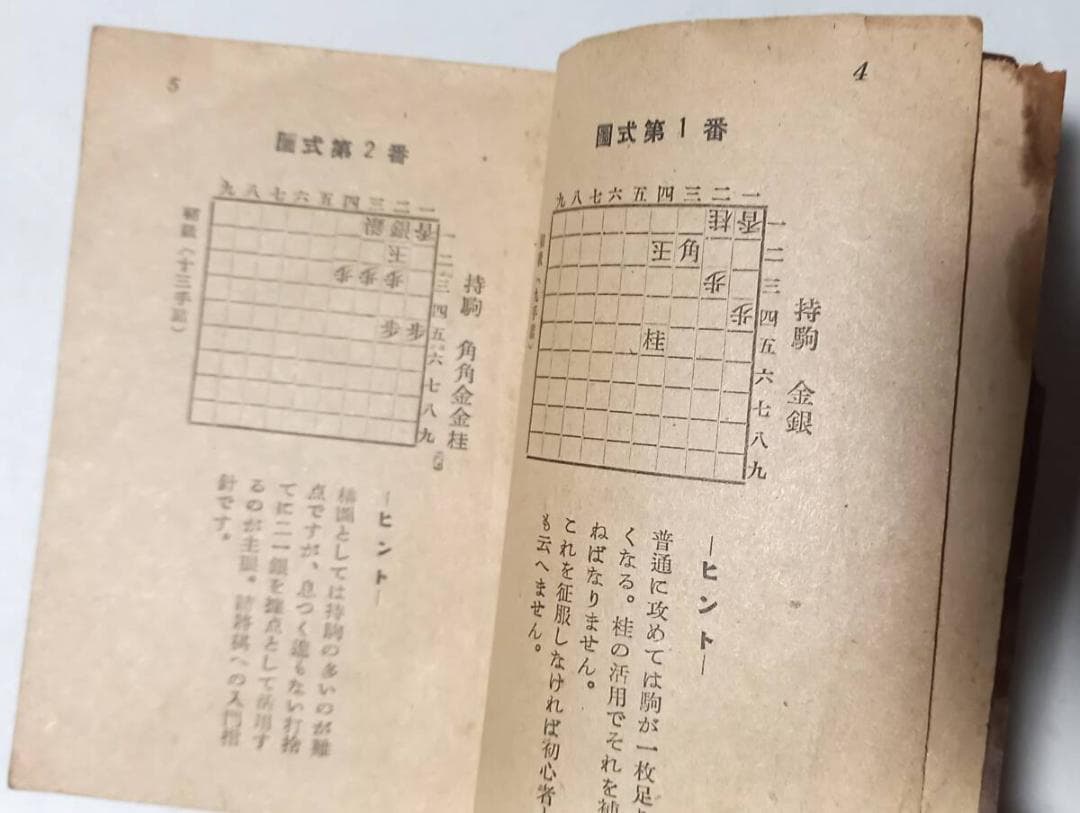 4
圖式第1番
九八七六五四三二一
桂香
王角
歩
歩
桂
一二三四五六七八九
持駒 金銀
―ヒント―
普通に攻めては駒が一枚足
くなる。桂の活用でそれを補
ねばなりません。
これを征服しなければ初心者
も云へません。
5
圖式第2番
九八七六五四三二一
香
王
歩歩歩
歩歩
一二三四五六七八九
持駒 角角金金桂
(十三手詰)
―ヒント―
構圖としては持駒の多いのが難
点ですが、息つく遑もない打捨
てに二一銀を據点として活用す
るのが主眼。詰將棋への入門指
針です。